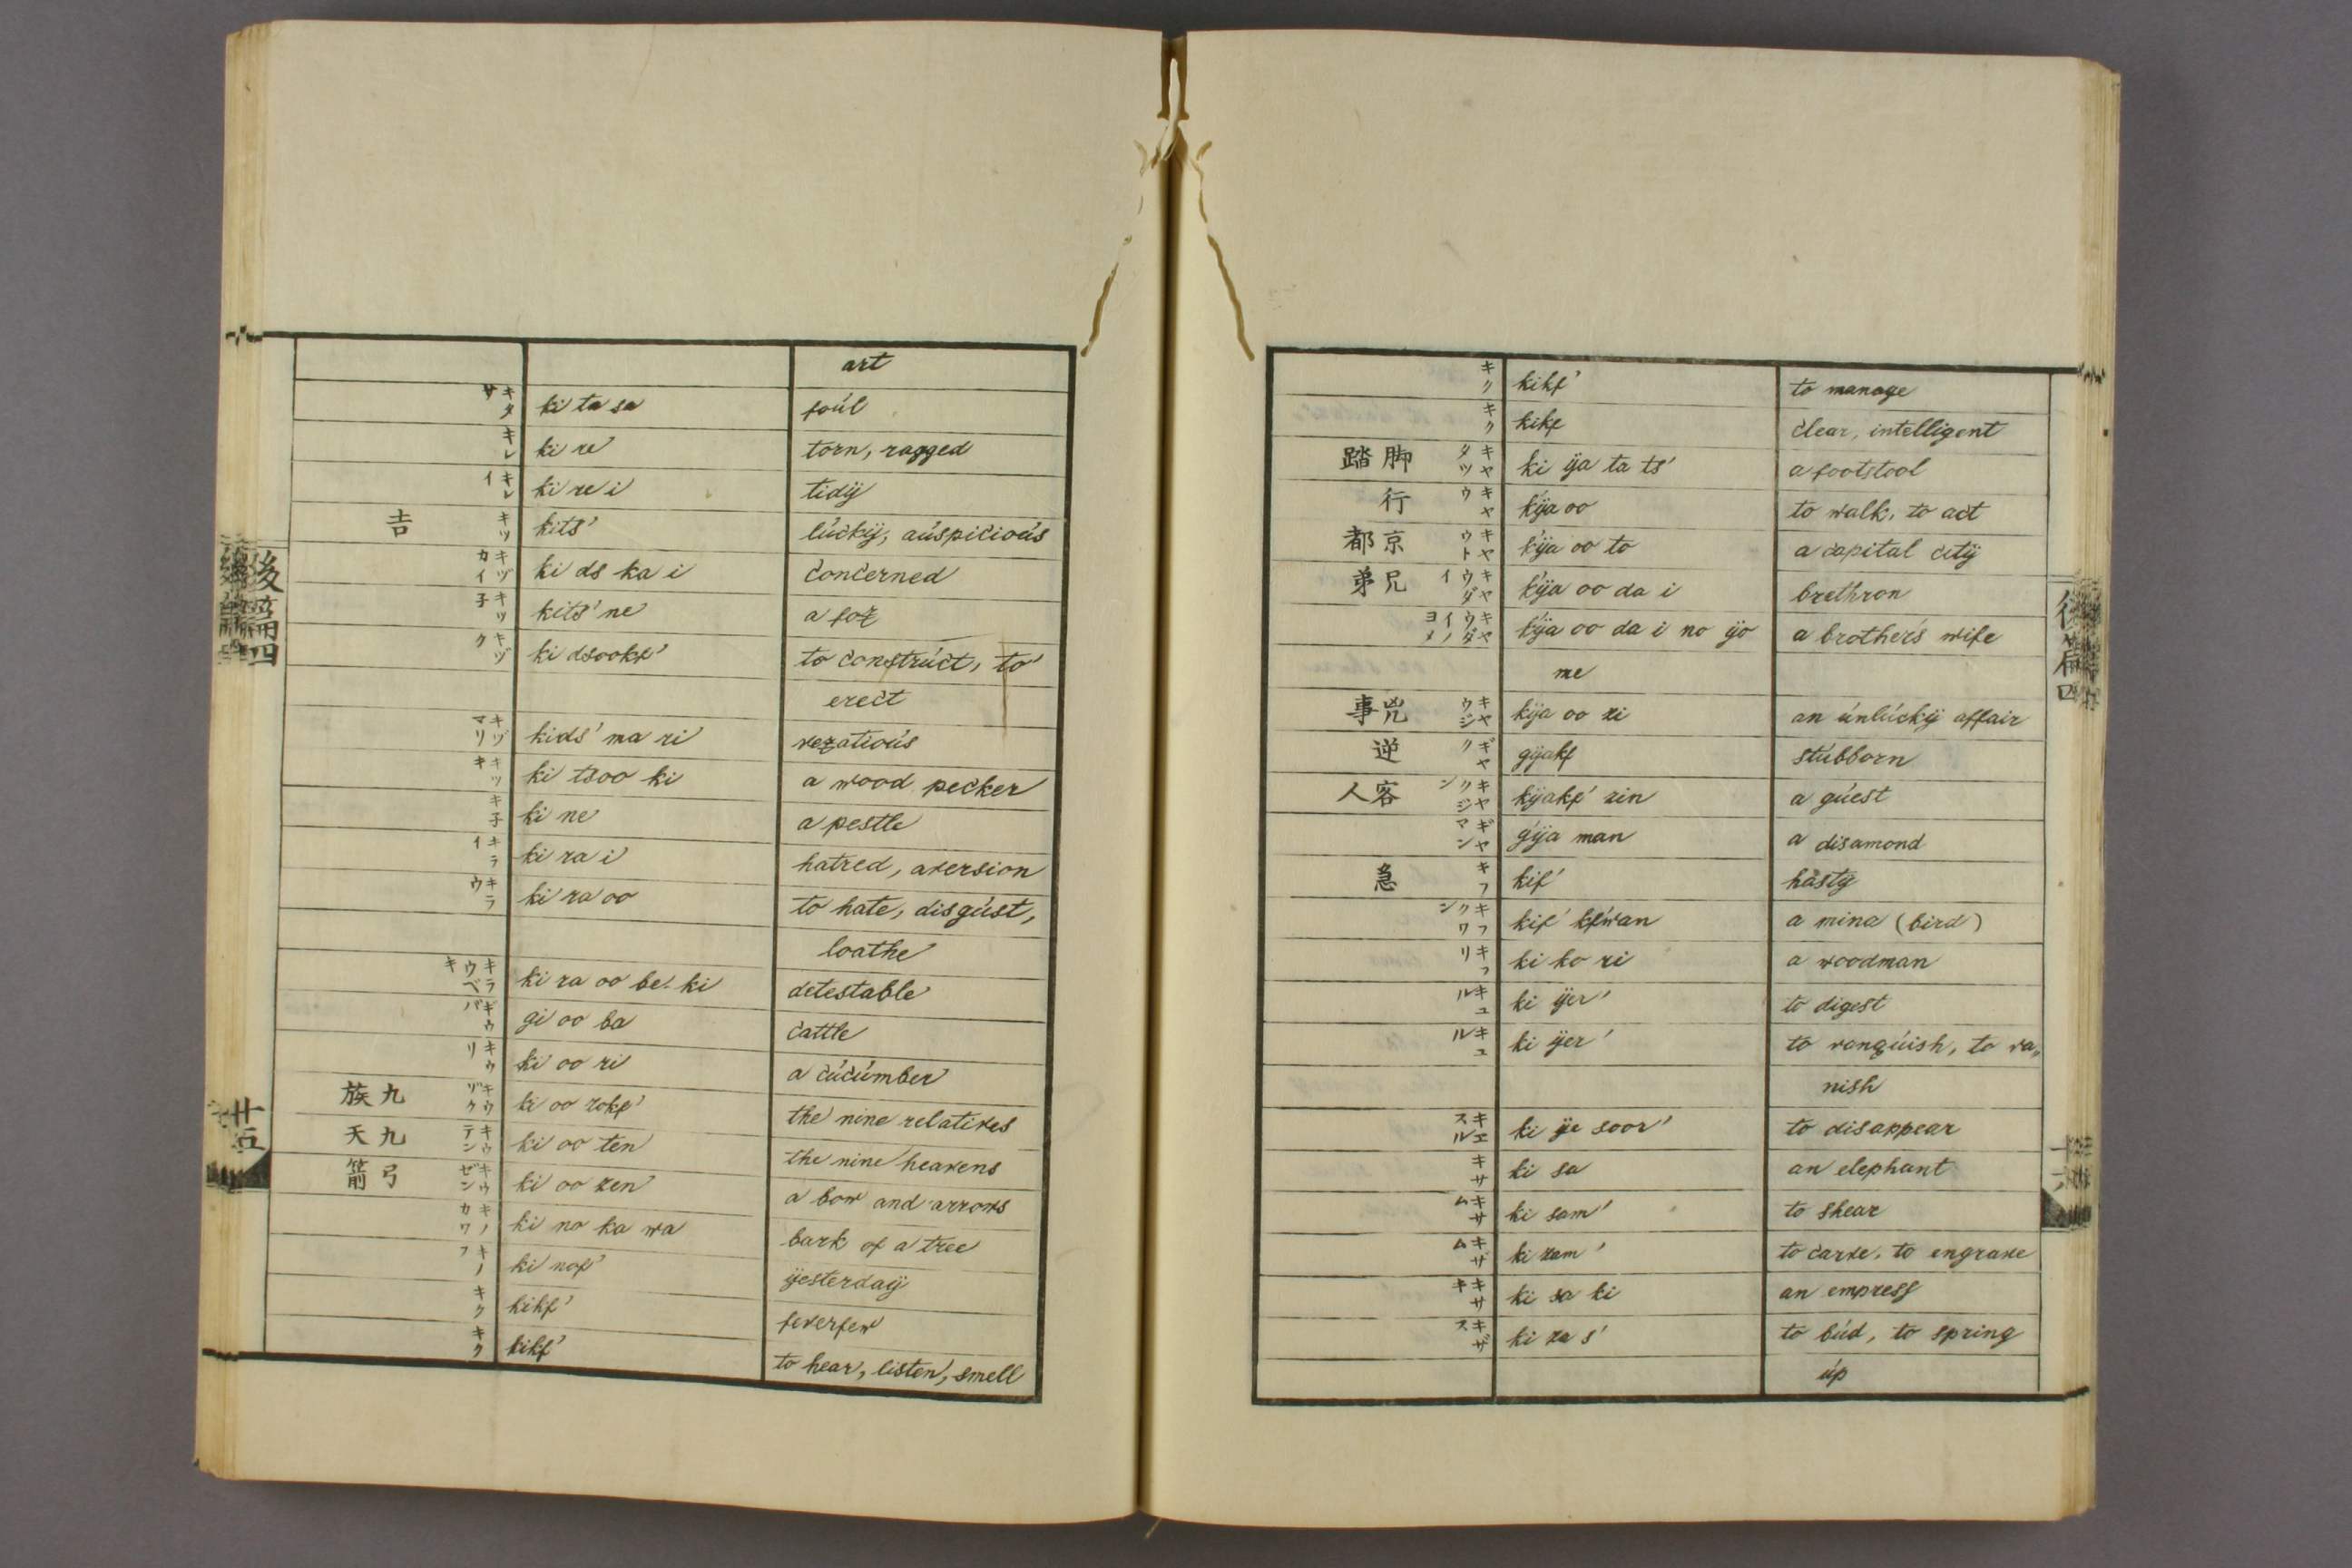 art
キタサ ki ta sa foúl
キレ ki re torn, ragged
キレイ ki re i tidÿ
吉 キツ kits' lúckÿ, aúspicioús
キヅカイ ki ds ka i concerned
キツ子 kits' ne a fox
キヅク ki dsookf' to constrúct, to
erect
キヅマリ kids' ma ri vexatioús
キツキ ki tsoo ki a wood pecker
キ子 ki ne a pestle
キライ ki ra i hatred, aversion
キラウ ki ra oo to hate, disgúst,
loathe
キラウベキ ki ra oo be ki detestable
ギウバ gi oo ba cattle
キウリ ki oo ri a cúcúmber
族九 キウゾク ki oo zokf' the nine relatives
天九 キウテン ki oo ten the nine heavens
箭弓 キウゼン ki oo zen a bow and arrows
キノカワ ki no ka wa bark of a tree
キノフ ki nof' ÿesterdaÿ
キク kikf' feverfew
キク kikf' to hear, listen, smell
後篇四
廿五
キク kikf' to manage
キク kikf clear, intelligent
踏脚 キヤタツ ki ÿa ta ts' a footstool
行 キヤウ kÿa oo to walk, to act
都京 キヤウト kÿa oo to a capital citÿ
弟兄 キヤウダイ kÿa oo da i brethron
キヤウダイノヨメ kÿa oo da i no ÿo a brother's wife
me
事兇 キヤウジ kÿa oo zi an únlúckÿ affair
逆 ギヤク gÿakf stúbborn
人客 キヤクジン kÿakf' zin a gúest
ギヤマン gÿa man a disamond
急 キフ kif' hasty
キフクワン kif' kfwan a mina (bird)
キコリ ki ko ri a woodman
キユル ki ÿer' to digest
キユル ki ÿer' to vanqúish, to va„
nish
キエスル ki ÿe soor' to disappear
キサ ki sa an elephant
キサム ki sam' to shear
キザム ki zam' to carve, to engrave
キサキ ki sa ki an empress
キザス ki za s' to búd, to spring
úp
後篇四